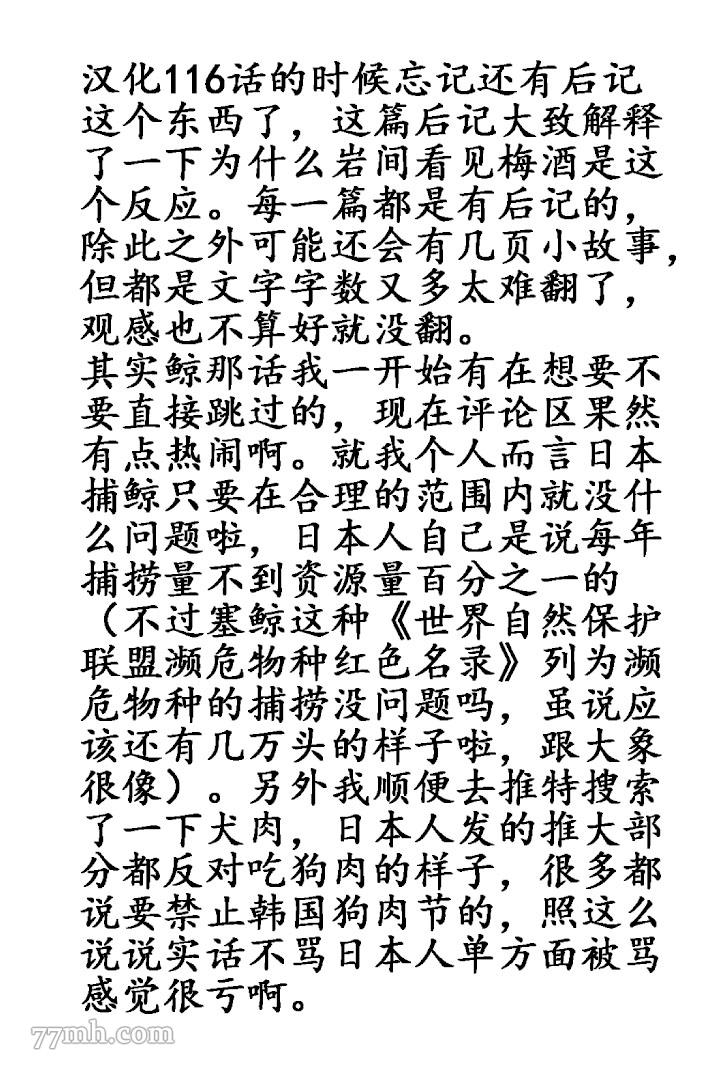 汉化116话的时候忘记还有后记
这个东西了，这篇后记大致解释
了一下为什么岩间看见梅酒是这
个反应。每一篇都是有后记的，
除此之外可能还会有几页小故事，
但都是文字字数又多太难翻了，
观感也不算好就没翻。
其实鲸那话我一开始有在想要不
要直接跳过的，现在评论区果然
有点热闹啊。就我个人而言日本
捕鲸只要在合理的范围内就没什
么问题啦，日本人自己是说每年
捕捞量不到资源量百分之一的
（不过塞鲸这种《世界自然保护
联盟濒危物种红色名录》列为濒
危物种的捕捞没问题吗，虽说应
该还有几万头的样子啦，跟大象
很像）。另外我顺便去推特搜索
了一下犬肉，日本人发的推大部
分都反对吃狗肉的样子，很多都
说要禁止韩国狗肉节的，照这么
说说实话不骂日本人单方面被骂
感觉很亏啊。
77mh.com